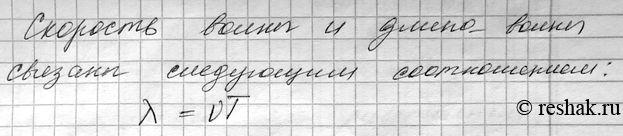 Скорость волны и длина волны
связаны следующим соотношением:
λ = υT
© reshak.ru